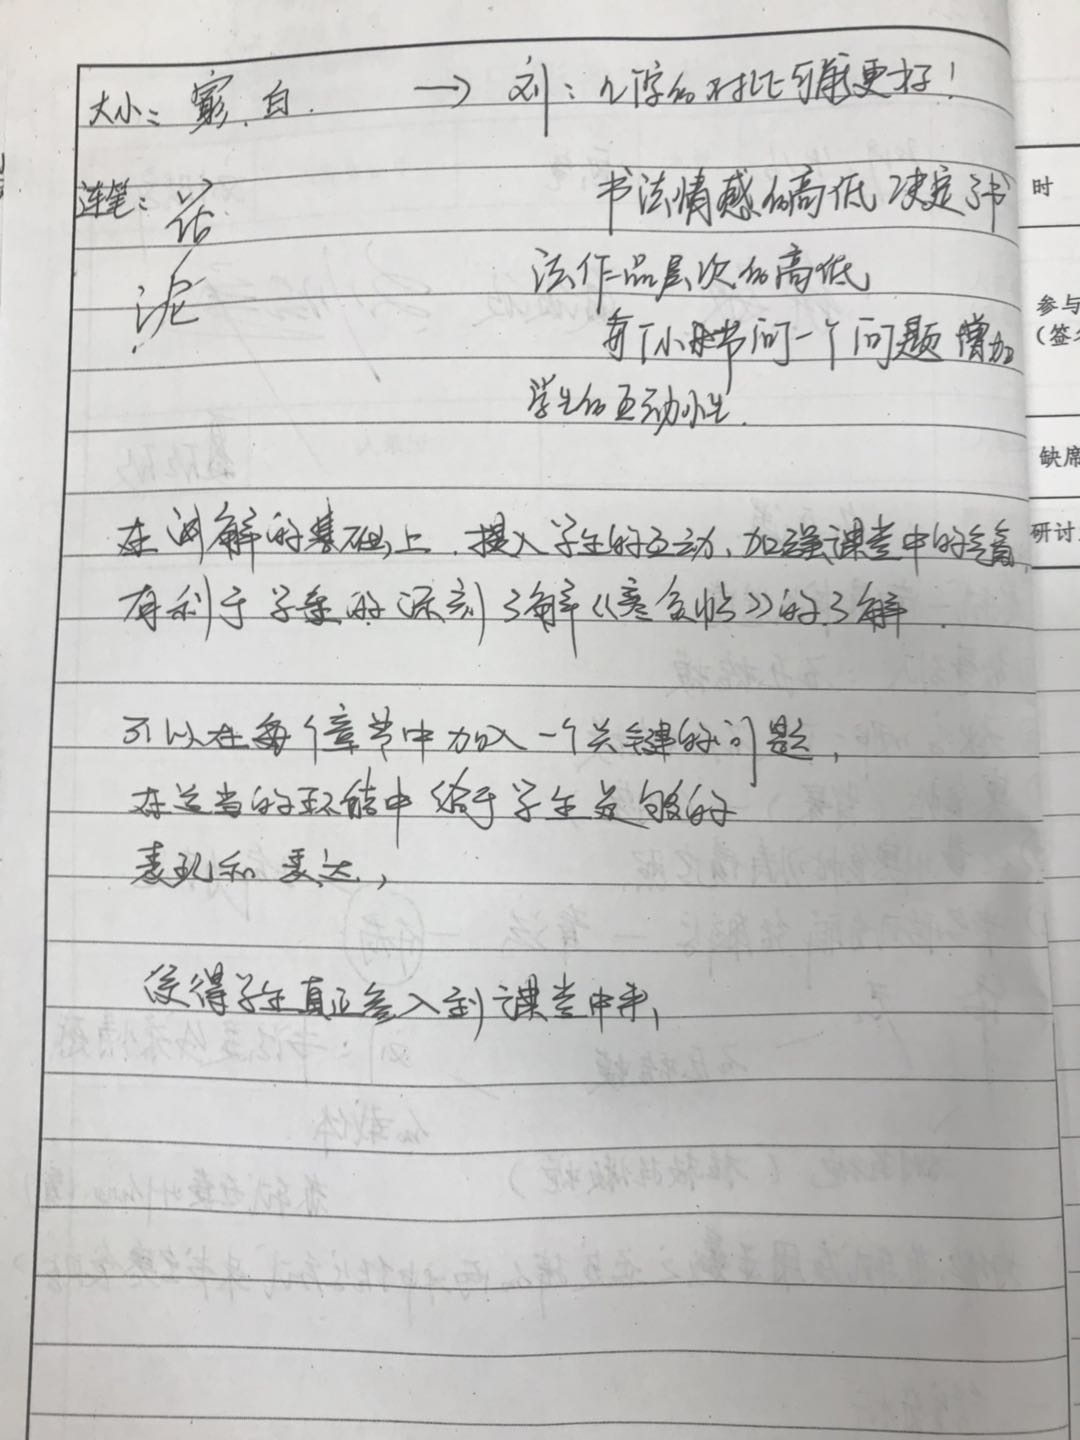 大小：寡、自. → 刘：几字的对比可能更好！
连笔：花 书法情感的高低决定了书
泥 法作品层次的高低
每个小环节问一个问题增加
学生的互动性.
在讲解的基础上，提入学生的互动、加强课堂中的
有利于学生的深刻了解《寒食帖》的了解.
可以在每个章节中加入一个关键的问题，
在适当的环节中给于学生足够的
表现和表达，
使得学生真正参入到课堂中来，
时
参与
（签名
缺席
研讨